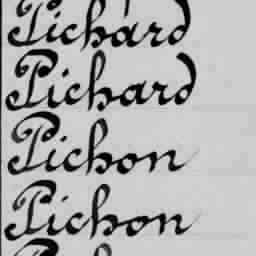 Pichard
Pichard
Pichon
Pichon